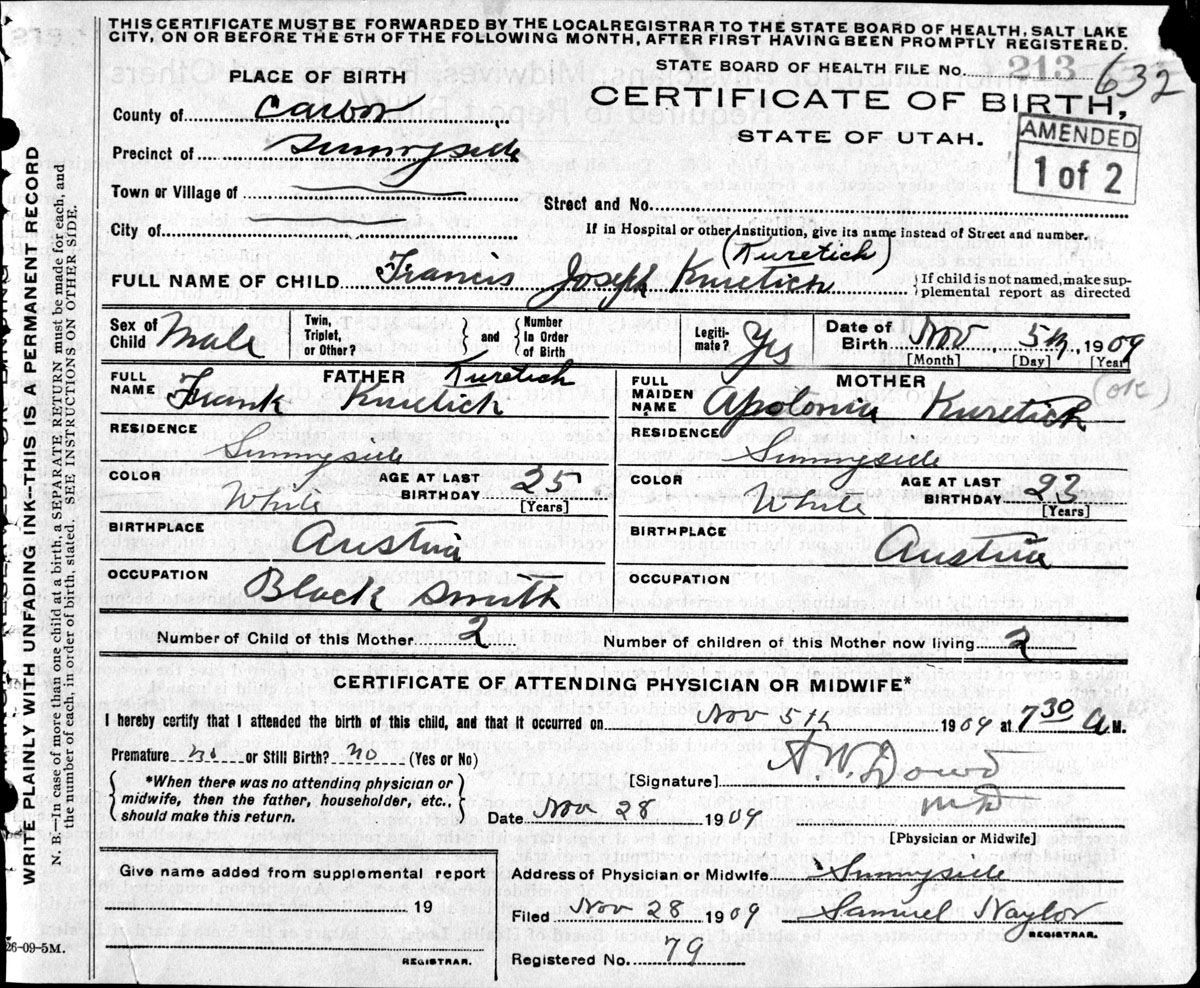 THIS CERTIFICATE MUST BE FORWARDED BY THE LOCAL REGISTRAR TO THE STATE BOARD OF HEALTH, SALT LAKE
CITY, ON OR BEFORE THE 5TH OF THE FOLLOWING MONTH, AFTER FIRST HAVING BEEN PROMPTLY REGISTERED.
PLACE OF BIRTH
STATE BOARD OF HEALTH FILE No. 213 632
County of Carbon
CERTIFICATE OF BIRTH,
STATE OF UTAH.
AMENDED
1 of 2
Precinct of Sunnyside
Town or Village of
Street and No.
City of
If in Hospital or other Institution, give its name instead of Street and number.
(Kuretich)
FULL NAME OF CHILD Francis Joseph Knretich
If child is not named, make supplemental report as directed
Sex of Child Male
Twin, Triplet, or Other?
and
Number In Order of Birth
Legitimate? Yes
Date of Birth Nov 5th, 1909
[Month] [Day] [Year]
FATHER
FULL NAME Frank Knretich Kuretich
RESIDENCE Sunnyside
COLOR White
AGE AT LAST BIRTHDAY 25
[Years]
BIRTHPLACE Austria
OCCUPATION Black Smith
MOTHER
FULL MAIDEN NAME Apolonia Kuretich (OK)
RESIDENCE Sunnyside
COLOR White
AGE AT LAST BIRTHDAY 23
[Years]
BIRTHPLACE Austria
OCCUPATION
Number of Child of this Mother 2
Number of children of this Mother now living 2
CERTIFICATE OF ATTENDING PHYSICIAN OR MIDWIFE*
I hereby certify that I attended the birth of this child, and that it occurred on Nov 5th 1909 at 7 30 A M.
Premature no or Still Birth? No (Yes or No)
*When there was no attending physician or midwife, then the father, householder, etc., should make this return.
[Signature] A.W. Dowd
MD
Date Nov 28 1909
[Physician or Midwife]
Give name added from supplemental report
19
REGISTRAR.
Address of Physician or Midwife Sunnyside
Filed Nov 28 1909 Samuel Naylor
REGISTRAR.
Registered No. 79
26-09-5M.
WRITE PLAINLY WITH UNFADING INK--THIS IS A PERMANENT RECORD
N. B.--In case of more than one child at a birth, SEPARATE RETURN must be made for each, and
the number of each, in order of birth, stated. SEE INSTRUCTIONS ON OTHER SIDE.